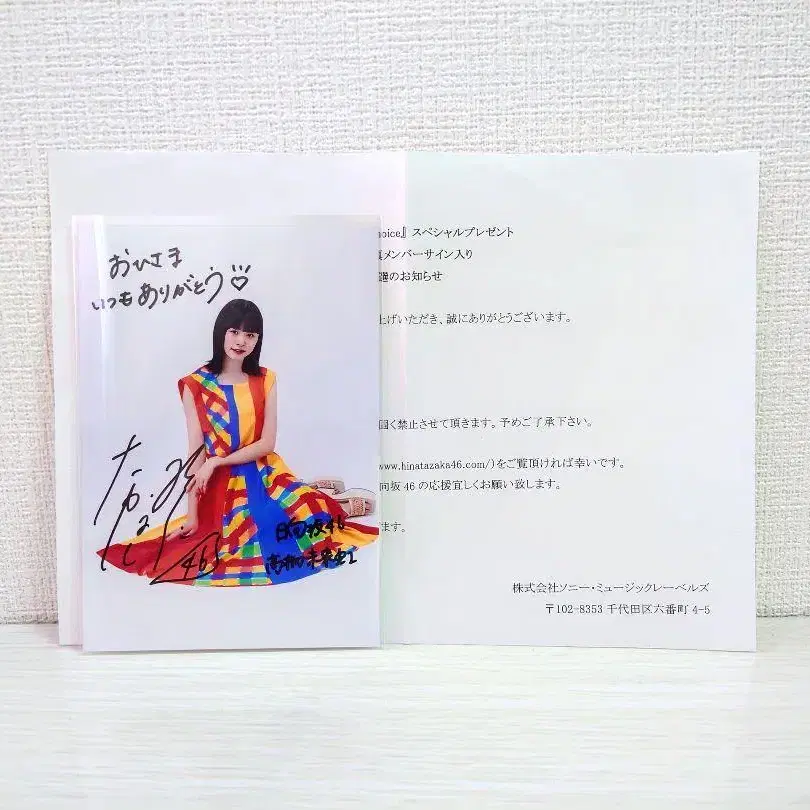 おひさま
いつもありがとう♡
46
日向坂46
髙橋未来虹
oice』スペシャルプレゼント
メンバーサイン入り
のお知らせ
上げいただき、誠にありがとうございます。
固く禁止させて頂きます。予めご了承下さい。
www.hinatazaka46.com/)をご覧頂ければ幸いです。
向坂46の応援宜しくお願い致します。
ます。
株式会社ソニー・ミュージックレーベルズ
〒102-8353 千代田区六番町 4-5